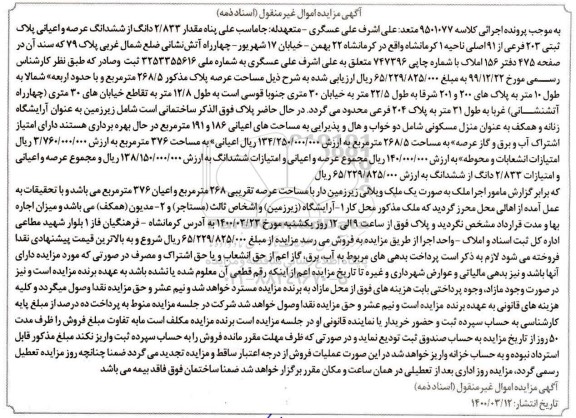 آگهی مزایده اموال غیر منقول (اسناد ذمه)
به موجب پرونده اجرائی کلاسه ۹۵۰۱۰۷۷ متعد: علی اشرف علی عسگری - متعهدله: جاماسب علی پناه مقدار ۲/۸۳۳ دانگ از ششدانگ عرصه و اعیانی پلاک
ثبتی ۲۰۳ فرعی از ۹۱ اصلی ناحیه ۱ کرمانشاه واقع در کرمانشاه ۲۲ بهمن - خیابان ۱۷ شهریور - چهارراه آتش نشانی ضلع شمال غربی پلاک ۷۹ که سند آن در
صفحه ۴۷۵ دفتر ۱۵۶ املاک با شماره چاپی ۷۴۷۳۹۶ متعلق به علی اشرف علی عسگری به شماره ملی ۳۲۵۳۳۵۵۶۱۶ ثبت وصادر که طبق نظر کارشناس
رسمی مورخ ۹۹/۱۲/۲۲ به مبلغ ۶۵/۲۲۹/۸۲۵/۰۰۰ ریال ارزیابی شده به شرح ذیل مساحت عرصه پلاک مذکور ۲۶۸/۵ مترمربع و با حدود اربعه» شمالا به
طول ۱۰ متر به پلاک های ۲۰۰ و ۲۰۱ شرقا به طول ۲۲/۵ متر به خیابان ۳۰ متری جنوبا قوسی است به طول ۱۲/۸ متر به تقاطع خیابان های ۳۰ متری (چهارراه
آتشنشانی) غربا به طول ۳۱ متر به پلاک ۲۰۴ فرعی محدود می گردد. در حال حاضر پلاک فوق الذکر ساختمانی است شامل زیرزمین به عنوان آرایشگاه
زنانه و همکف به عنوان منزل مسکونی شامل دو خواب و هال و پذیرایی به مساحت های اعیانی ۱۸۶ و ۱۹۱ مترمربع در حال بهره برداری هستند دارای امتیاز
اشتراک آب و برق و گاز عرصه» به مساحت ۲۶۸/۵ مترمربع به ارزش ۱۳۴/۲۵۰/۰۰۰/۰۰۰ ریال اعیانی» به مساحت ۳۷۶ مترمربع به ارزش ۳/۷۶۰/۰۰۰/۰۰۰ ریال
امتیازات انشعابات و محوطه» به ارزش ۱۴۰/۰۰۰/۰۰۰ ریال مجموع عرصه و اعیانی و امتیازات ششدانگ به ارزش ۱۳۸/۱۵۰/۰۰۰/۰۰۰ ریال و مجموع عرصه و اعیانی
و امتیازات ۲/۸۳۳ دانگ از ششدانگ به ارزش ۶۵/۲۲۹/۸۲۵/۰۰۰ ریال
که برابر گزارش مامور اجرا ملک به صورت یک ملک ویلائی زیرزمین دار با مساحت عرصه تقریبی ۲۶۸ مترمربع و اعیان ۳۷۶ مترمربع می باشد و با تحقیقات به
عمل آمده از اهالی محل محرز گردید که ملک مذکور محل کار ۱- آرایشگاه (زیرزمین) و اشخاص ثالث (مستاجر) و ۲- مدیون (همکف) می باشد و میزان اجاره
بها و مدت قرارداد مشخص نگردید و پلاک فوق از ساعت ۹ الی ۱۲ روز یکشنبه مورخ ۱۴۰۰/۰۳/۲۳ به آدرس کرمانشاه - فرهنگیان فاز ۱ بلوار شهید مطاعی
اداره کل ثبت اسناد و املاک - واحد اجرا از طریق مزایده به فروش می رسد مزایده از مبلغ ۶۵/۲۲۹/۸۲۵/۰۰۰ ریال شروع و به بالاترین قیمت پیشنهادی نقدا
فروخته می شود لازم به ذکر است پرداخت بدهی های مربوط به آب، برق، گاز اعم از حق انشعاب و یا حق اشتراک و مصرف در صورتی که مورد مزایده دارای
آنها باشد و نیز بدهی مالیاتی و عوارض شهرداری و غیره تا تاریخ مزایده اعم از اینکه رقم قطعی آن معلوم شده یا نشده باشد به عهده برنده مزایده است و نیز
در صورت وجود مازاد، وجوه پرداختی بابت هزینه های فوق از محل مازاد به برنده مزایده مسترد خواهد شد و نیم عشر و حق مزایده نقدا وصول میگردد و کلیه
هزینه های قانونی به عهده برنده مزایده است و نیم عشر و حق مزایده نقدا وصول خواهد شد شرکت در جلسه مزایده منوط به پرداخت ده درصد از مبلغ پایه
کارشناسی به حساب سپرده ثبت و حضور خریدار یا نماینده قانونی او در جلسه مزایده است برنده مزایده مکلف است مابه تفاوت مبلغ فروش را ظرف مدت
۵۰ روز از تاریخ مزایده به حساب صندوق ثبت تودیع نماید و در صورتی که ظرف مهلت مقرر مانده فروش را به حساب سپرده ثبت واریز نکند مبلغ مذکور قابل
استرداد نبوده و به حساب خزانه واریز خواهد شد در این صورت عملیات فروش از درجه اعتبار ساقط و مزایده تجدید می گردد ضمنا چنانچه روز مزایده تعطیل
رسمی گردد، مزایده روز اداری بعد از تعطیلی در همان ساعت و مکان مقرر برگزار خواهد شد ضمنا ساختمان فوق فاقد بیمه می باشد
آگهی مزایده اموال غیر منقول (اسناد ذمه)
تاریخ انتشار: ۱۴۰۰/۰۳/۱۲